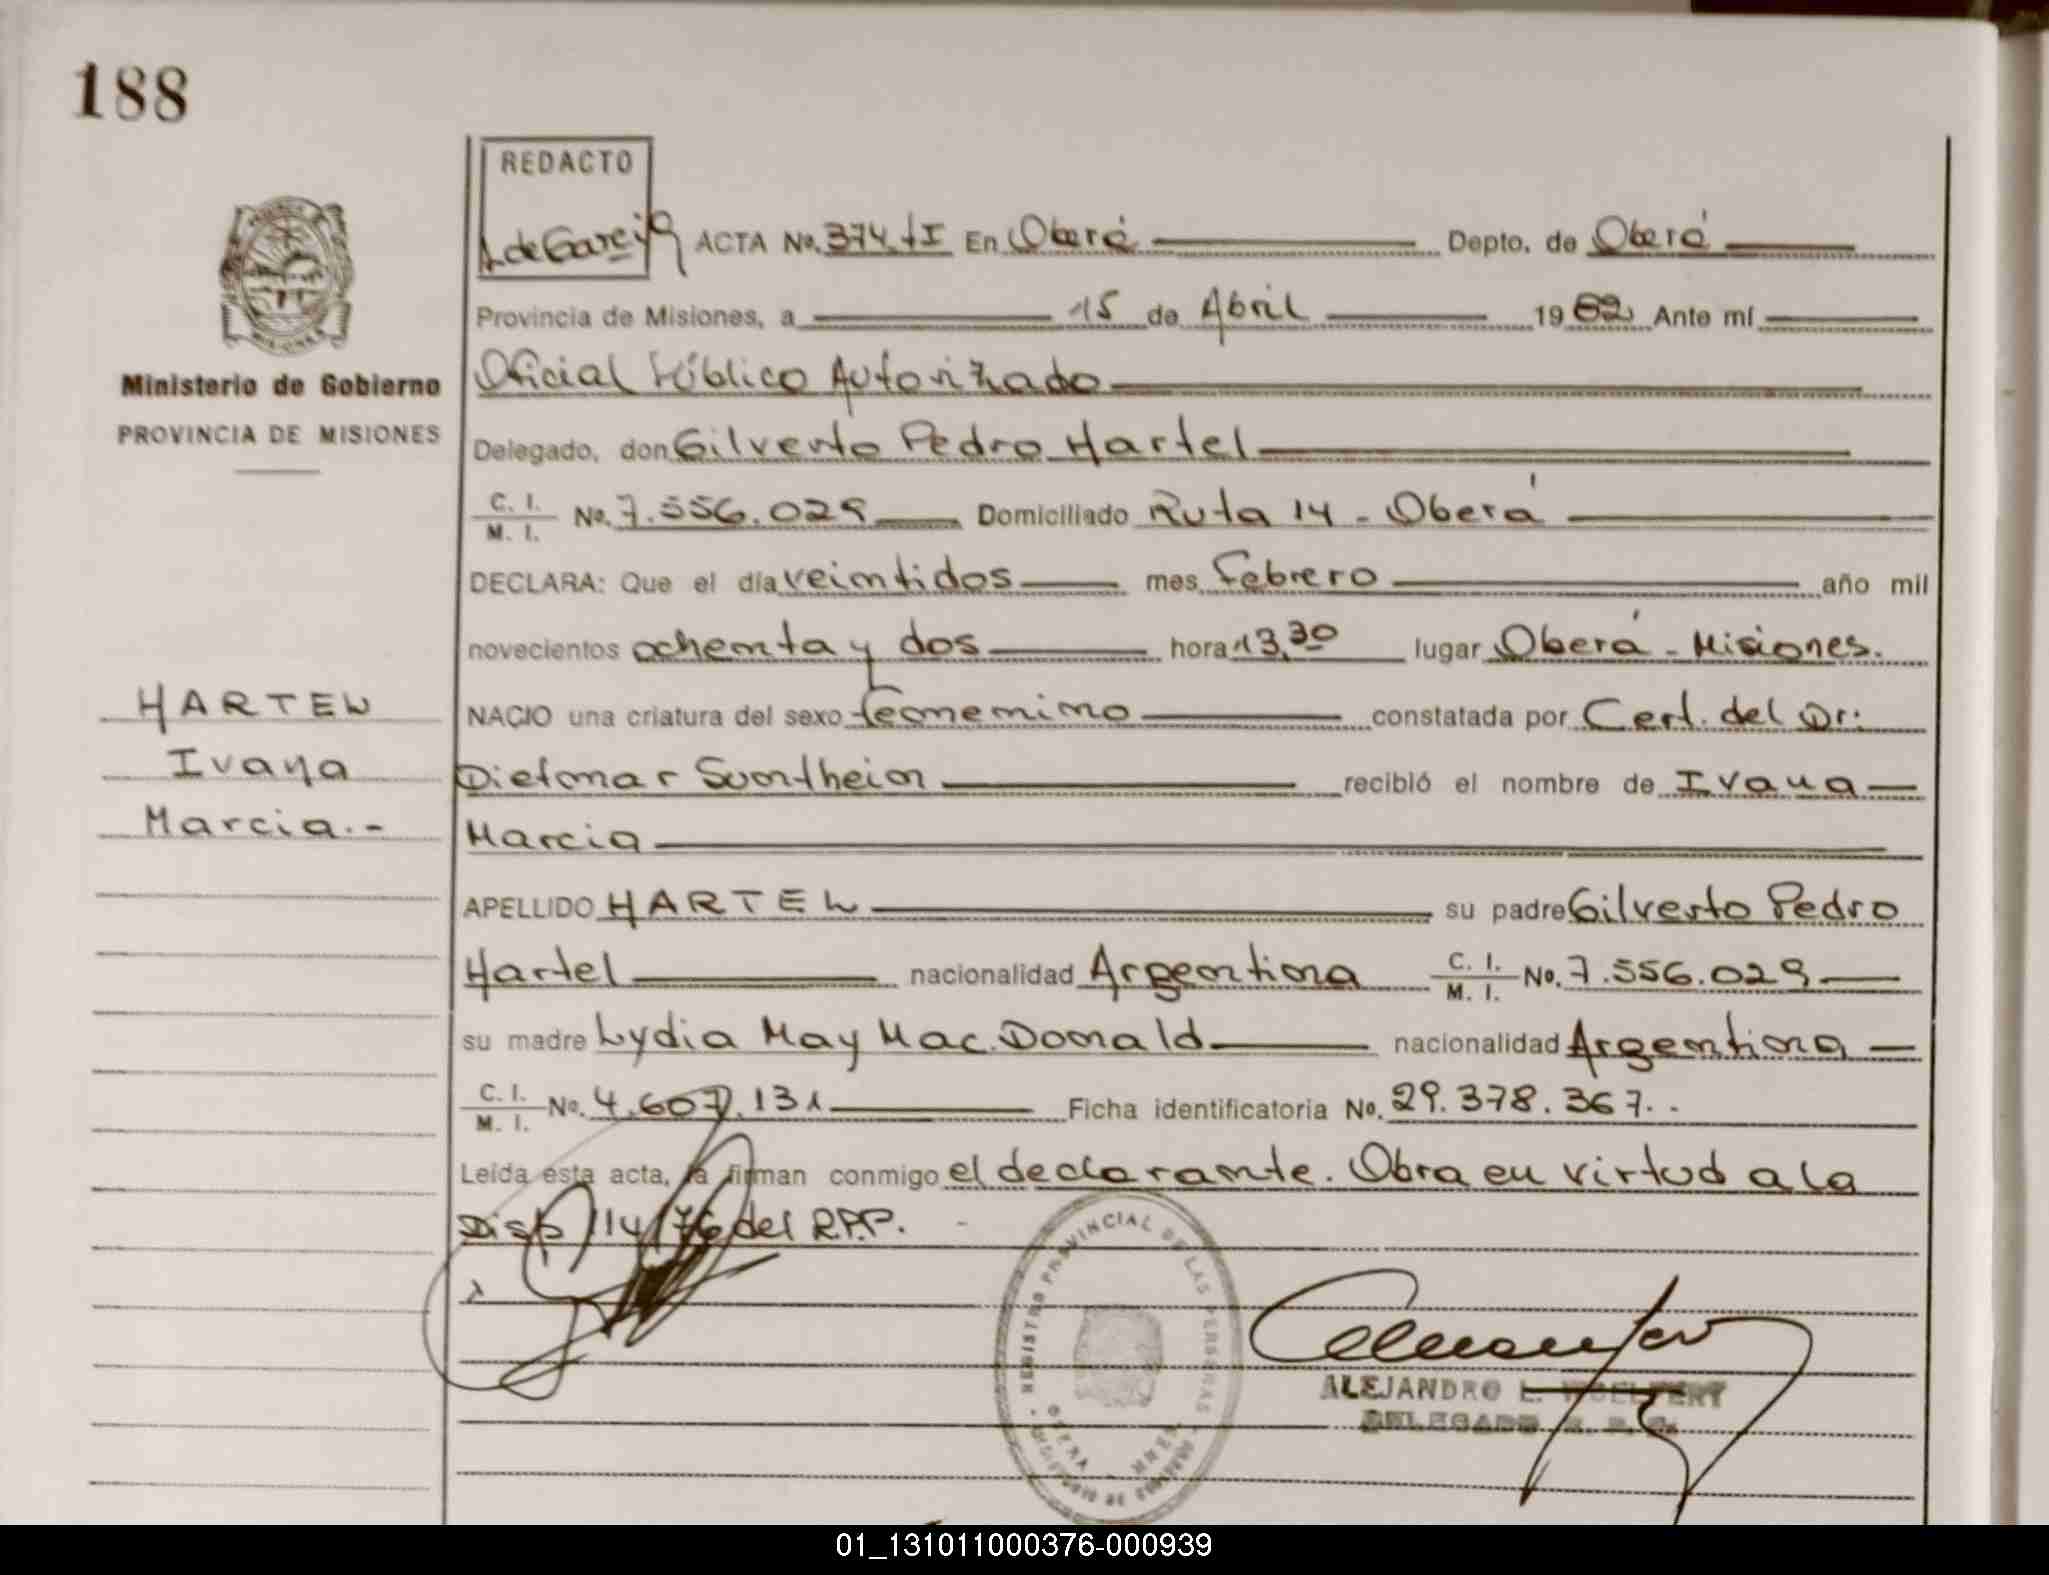 188
REDACTO
L. de Garcia ACTA No. 374 tI En Oberá Depto. de Oberá
Provincia de Misiones, a 15 de Abril 1982 Ante mí
Oficial Público Autorizado
Ministerio de Gobierno
PROVINCIA DE MISIONES
Delegado, don Gilverto Pedro Hartel
C. I. M. I. No. 7.556.029 Domiciliado Ruta 14 - Oberá
DECLARA: Que el día veintidos mes Febrero año mil
novecientos ochenta y dos hora 13,30 lugar Oberá - Misiones.
HARTEL
Ivana
Marcia.-
NACIO una criatura del sexo femenino constatada por Cert. del Dr:
Dietmar Sontheim recibió el nombre de Ivana
Marcia
APELLIDO HARTEL su padre Gilverto Pedro
Hartel nacionalidad Argentina C. I. M. I. No. 7.556.029
su madre Lydia May Mac.Donald nacionalidad Argentina
C. I. M. I. No. 4.607.131 Ficha identificatoria No. 29.378.367.-
Leída esta acta, la firman conmigo el declarante. Obra en virtud a la
Disp 114/76 del R.P.P. -
REGISTRO PROVINCIAL DE LAS PERSONAS
OBERA - MNES.
ALEJANDRO L. WOELFERT
DELEGADO
01_131011000376-000939